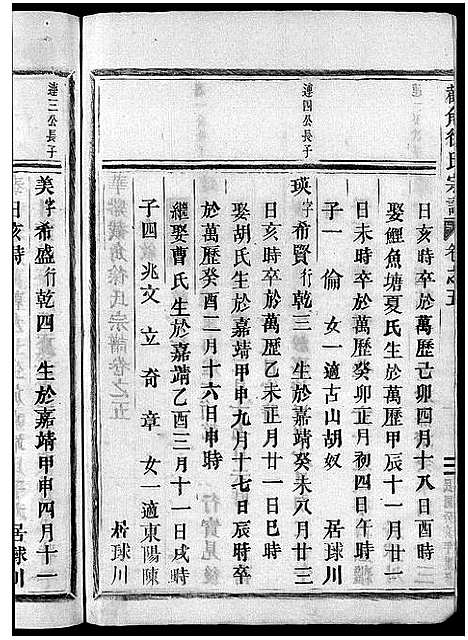 徐氏宗譜 卷之五
日亥時卒於萬歷己卯四月十八日酉時
娶鯉魚塘夏氏生於萬歷甲辰十一月廿一
日未時卒於萬歷癸卯正月初四日午時
子一 倫 女一適古山胡奴 居球川
遵四公長子
瑛字希賢行乾三 生於嘉靖癸未八月廿三
日亥時卒於萬歷乙未正月廿一日巳時
娶胡氏生於嘉靖甲申九月十七日辰時卒
於萬歷癸酉二月十六日申時
繼娶曹氏生於嘉靖乙酉三月十一日戌時
子四 兆文 立 奇 章 女一適東陽陳 居球川
遵三公長子
美字希盛行乾四 生於嘉靖甲申四月十一
日亥時 居球川